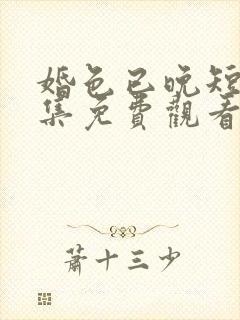 婚色已晚短
集免費觀看
蕭十三少